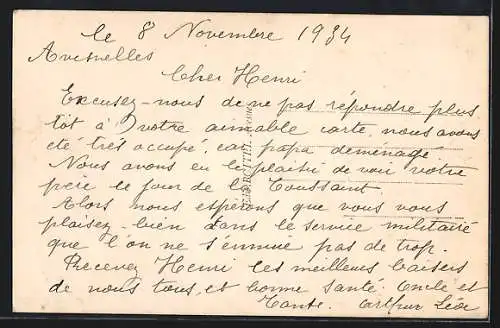 le 8 Novembre 1934
Avesnelles
Cher Henri
Excusez-nous de ne pas répondre plus
tôt à votre aimable carte, nous avons
été très occupé, car papa déménage.
Nous avons eu le plaisir de voir votre
père le jour de la Toussaint.
Alors nous espérons que vous vous
plaisez bien dans le service militaire
que l'on ne s'ennuie pas de trop.
Recevez Henri les meilleurs baisers
de nous tous, et bonne santé. Oncle et
Tante. Arthur